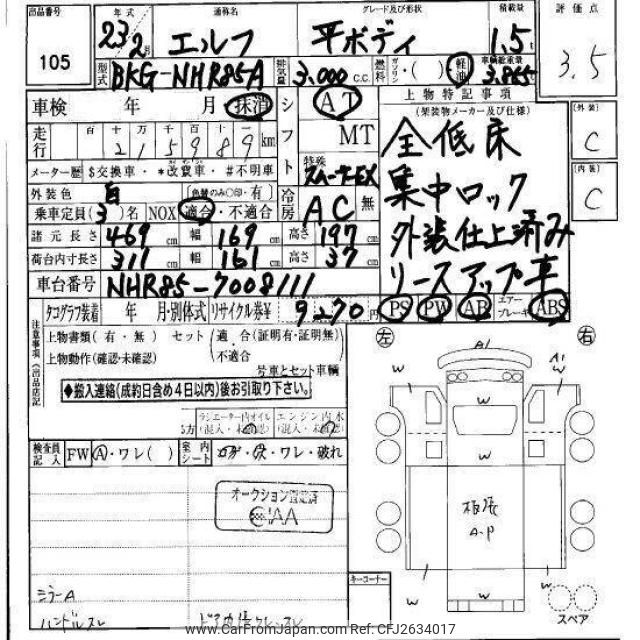 出品番号 年式 通称名 グレード及び形状 積載量 評価点
105 23 2月 エルフ 平ボディ 1.5t 3.5
型式 BKG-NHR85A 排気量 3.000 C.C. 燃料 ガソリン・( ) 軽油 車輌総重量 3.865
車検 年 月・抹消 シフト AT 上物特記事項
MT (架装物メーカー及び仕様) 外装 C
走行 百 十 万 千 百 十 一 km
2 1 5 9 8 9
全低床
メーター歴 $交換車・*改ざん車・#不明車 特殊 スムーサーEX 内装 C
集中ロック
外装色 白 (色替のみ○印・有) 冷房 AC 無
乗車定員(3)名 NOX 適合・不適合
外装仕上済み
諸元長さ 469 cm 幅 169 cm 高さ 197 cm
荷台内寸長さ 311 cm 幅 161 cm 高さ 37 cm
リースアップ車
車台番号 NHR85-7008111
タコグラフ装着 年 月・別体式 リサイクル券¥ 9270円 PS PW AB エアーブレーキ ABS
注意事項(出品店記
上物書類(有・無) セット 適合(証明有・証明無)
上物動作(確認・未確認) 不適合
号車とセット車輌
◆搬入連絡(成約日含め4日以内)後お引取り下さい。
ラジエーター内オイル エンジン内水
(混入・未確認) (混入・未確認)
左 右
A1
A1
W W
W
検査員記入 FW A・ワレ( ) 室内 シート コゲ・穴・ワレ・破れ
W W
オークション
AA
板張
A-P
W W
W
ミラーA
キーコーナー
ハンドルスレ
スペア
www.CarFromJapan.com Ref: CFJ2634017